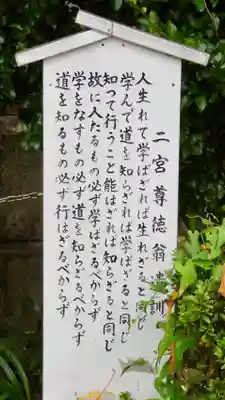 二宮尊徳翁遺訓
人生れて学ばざれば生れざると同じ
学んで道を知らざれば学ばざると同じ
知って行うこと能はざれば知らざると同じ
故に人たるもの必ず学ばざるべからず
学をなすもの必ず道を知らざるべからず
道を知るもの必ず行はざるべからず